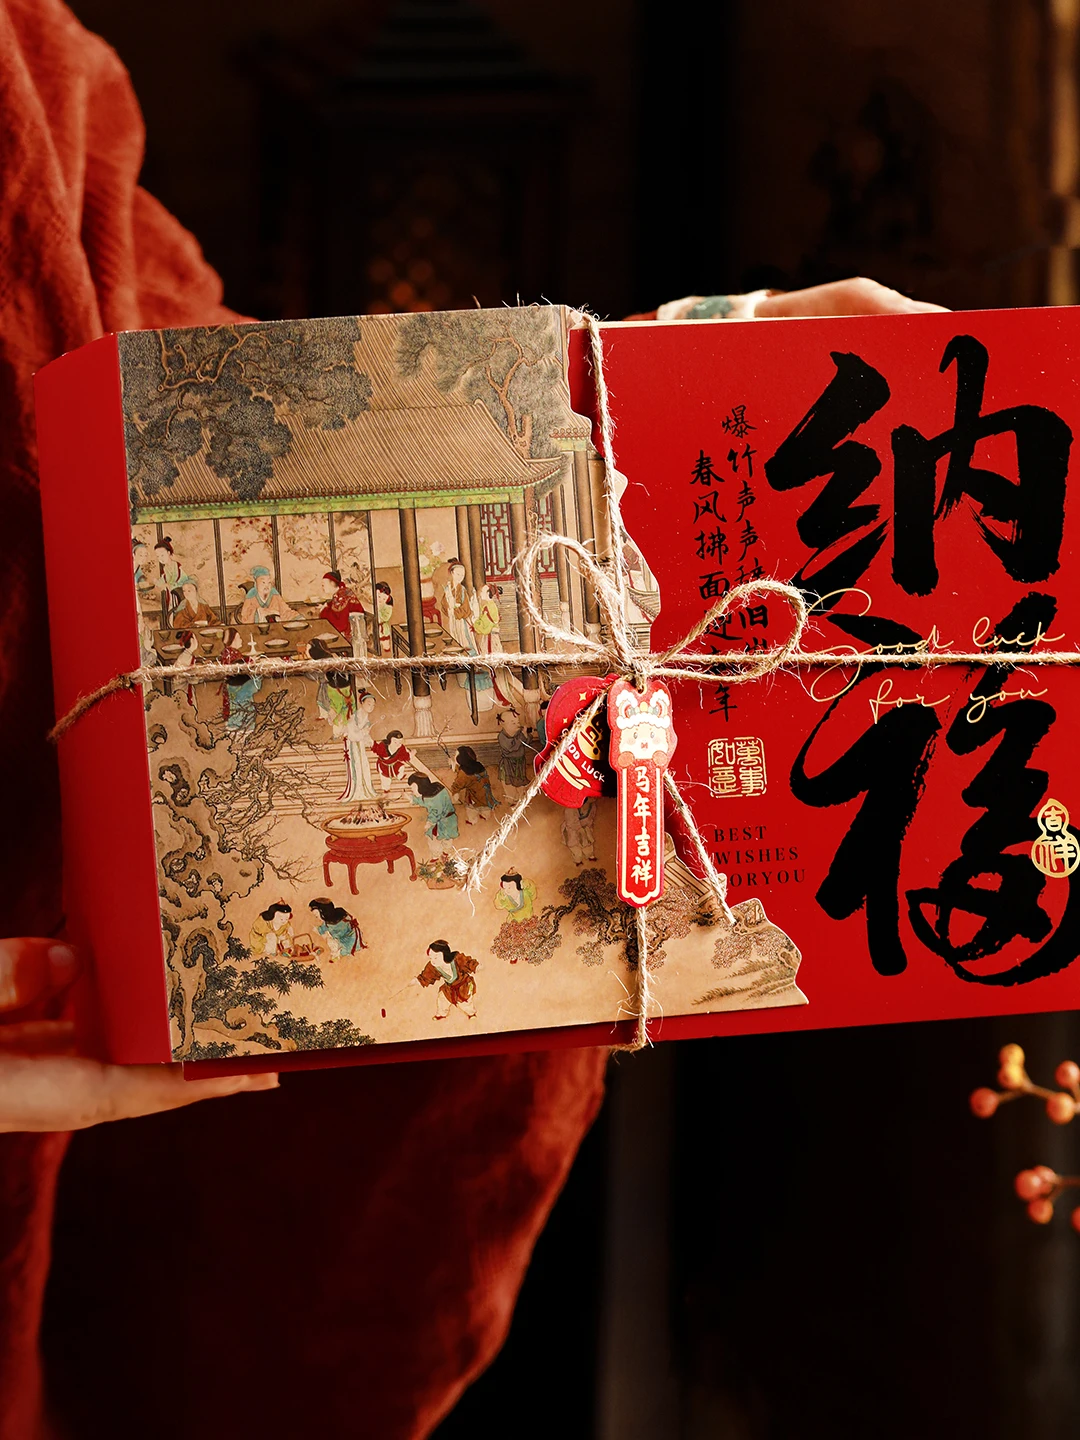 纳福
爆竹声声辞旧岁
春风拂面迎新年
Good luck
for you
萬事如意
BEST
WISHES
FORYOU
吉祥
马年吉祥
GOOD LUCK